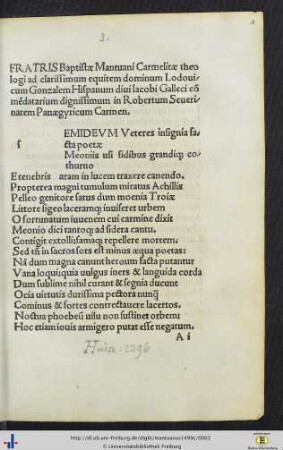 3.
FRATRIS Baptistæ Mantuani Carmelitæ theo
logi ad clarissimum equitem dominum Lodoui
cum Gonzalem Hispanum diui Iacobi Galleci cõ
mēdatarium dignissimum in Robertum Seueri
natem Panægyricum Carmen.
EMIDEVM Veteres insignia fa
s
cta poetæ
Meoniis usi fidibus grandiq; co
thurno
E tenebris aram in lucem traxere canendo.
Propterea magni tumulum miratus Achillis
Pelleo genitore satus dum moenia Troiæ
Littore sigeo laceramq; inuiseret urbem
O fortunatum iuuenem cui carmine dixit
Meonio dici tantoq; ad sidera cantu.
Contigit extollifamaq; repellere mortem.
Sed tñ in sacros sors est minus æqua poetas:
Nā dum magna canunt heroum facta putantur
Vana loqui: quia uulgus iners & languida corda
Dum sublime nihil curant & segnia ducunt
Ocia uirtutis durissima pectora nunq̃
Cominus & fortes contrectauere lacertos.
Noctua phoebeũ uisu non sustinet orbem:
Hoc etiam iouis armigero putat esse negatum.
A i
http://dl.ub.uni-freiburg.de/diglit/mantuanus1499c/0003
© Universitätsbibliothek Freiburg
Baden-Württemberg